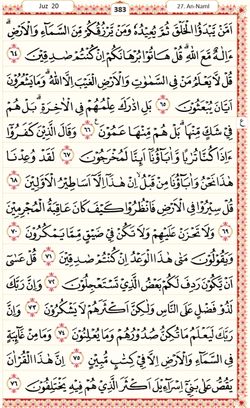 Juz 20
383
27. An-Naml
اَمَّنْ يَّبْدَؤُا الْخَلْقَ ثُمَّ يُعِيْدُهٗ وَمَنْ يَّرْزُقُكُمْ مِّنَ السَّمَآءِ وَالْاَرْضِ ؕ
ءَاِلٰهٌ مَّعَ اللّٰهِ ؕ قُلْ هَاتُوْا بُرْهَانَكُمْ اِنْ كُنْتُمْ صٰدِقِيْنَ ﴿٦٤﴾
قُلْ لَّا يَعْلَمُ مَنْ فِى السَّمٰوٰتِ وَالْاَرْضِ الْغَيْبَ اِلَّا اللّٰهُ ؕ وَمَا يَشْعُرُوْنَ
اَيَّانَ يُبْعَثُوْنَ ﴿٦٥﴾ بَلِ ادّٰرَكَ عِلْمُهُمْ فِى الْاٰخِرَةِ ۚ بَلْ هُمْ
فِيْ شَكٍّ مِّنْهَا ۚ بَلْ هُمْ مِّنْهَا عَمُوْنَ ﴿٦٦﴾ وَقَالَ الَّذِيْنَ كَفَرُوْٓا
ءَاِذَا كُنَّا تُرٰبًا وَّاٰبَآؤُنَآ اَئِنَّا لَمُخْرَجُوْنَ ﴿٦٧﴾ لَقَدْ وُعِدْنَا
هٰذَا نَحْنُ وَاٰبَآؤُنَا مِنْ قَبْلُ ۙ اِنْ هٰذَآ اِلَّآ اَسَاطِيْرُ الْاَوَّلِيْنَ ﴿٦٨﴾
قُلْ سِيْرُوْا فِى الْاَرْضِ فَانْظُرُوْا كَيْفَ كَانَ عَاقِبَةُ الْمُجْرِمِيْنَ
﴿٦٩﴾ وَلَا تَحْزَنْ عَلَيْهِمْ وَلَا تَكُنْ فِيْ ضَيْقٍ مِّمَّا يَمْكُرُوْنَ ﴿٧٠﴾
وَيَقُوْلُوْنَ مَتٰى هٰذَا الْوَعْدُ اِنْ كُنْتُمْ صٰدِقِيْنَ ﴿٧١﴾ قُلْ عَسٰٓى
اَنْ يَّكُوْنَ رَدِفَ لَكُمْ بَعْضُ الَّذِيْ تَسْتَعْجِلُوْنَ ﴿٧٢﴾ وَاِنَّ رَبَّكَ
لَذُوْ فَضْلٍ عَلَى النَّاسِ وَلٰكِنَّ اَكْثَرَهُمْ لَا يَشْكُرُوْنَ ﴿٧٣﴾ وَاِنَّ
رَبَّكَ لَيَعْلَمُ مَا تُكِنُّ صُدُوْرُهُمْ وَمَا يُعْلِنُوْنَ ﴿٧٤﴾ وَمَا مِنْ غَآئِبَةٍ
فِى السَّمَآءِ وَالْاَرْضِ اِلَّا فِيْ كِتٰبٍ مُّبِيْنٍ ﴿٧٥﴾ اِنَّ هٰذَا الْقُرْاٰنَ
يَقُصُّ عَلٰى بَنِيْٓ اِسْرَآءِيْلَ اَكْثَرَ الَّذِيْ هُمْ فِيْهِ يَخْتَلِفُوْنَ ﴿٧٦﴾